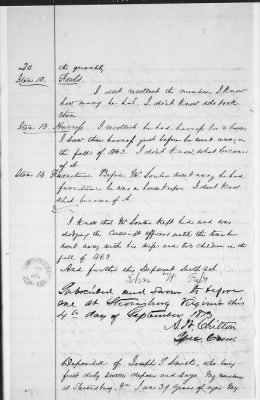 20 the quantity
Item 10. Fowls
I don't recollect the number, I know
how many he had. I don't know who took
them
Item 13. Harness I recollect he had harness for a horse
I saw there harness just before he went away in
the fall of 1863. I don't know what became
of it
Item 14. Furniture. Before Mr went away he had
furniture he was a housekeeper. I don't know
what became of it
I know that Mr kept hid and was
dodging the conscript officers until the
went away with his wife and two children in the
fall of 1863
And further this Deponent saith not
John W.
Subscribed and sworn to before
me at Virginia this
4th day of September 187
Deposition of Joseph T. who being
first duly sworn deposes and says My
is I am 39 years of age My